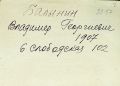 Балынин
Владимир Георгиевич
1907
6 Слободская 102